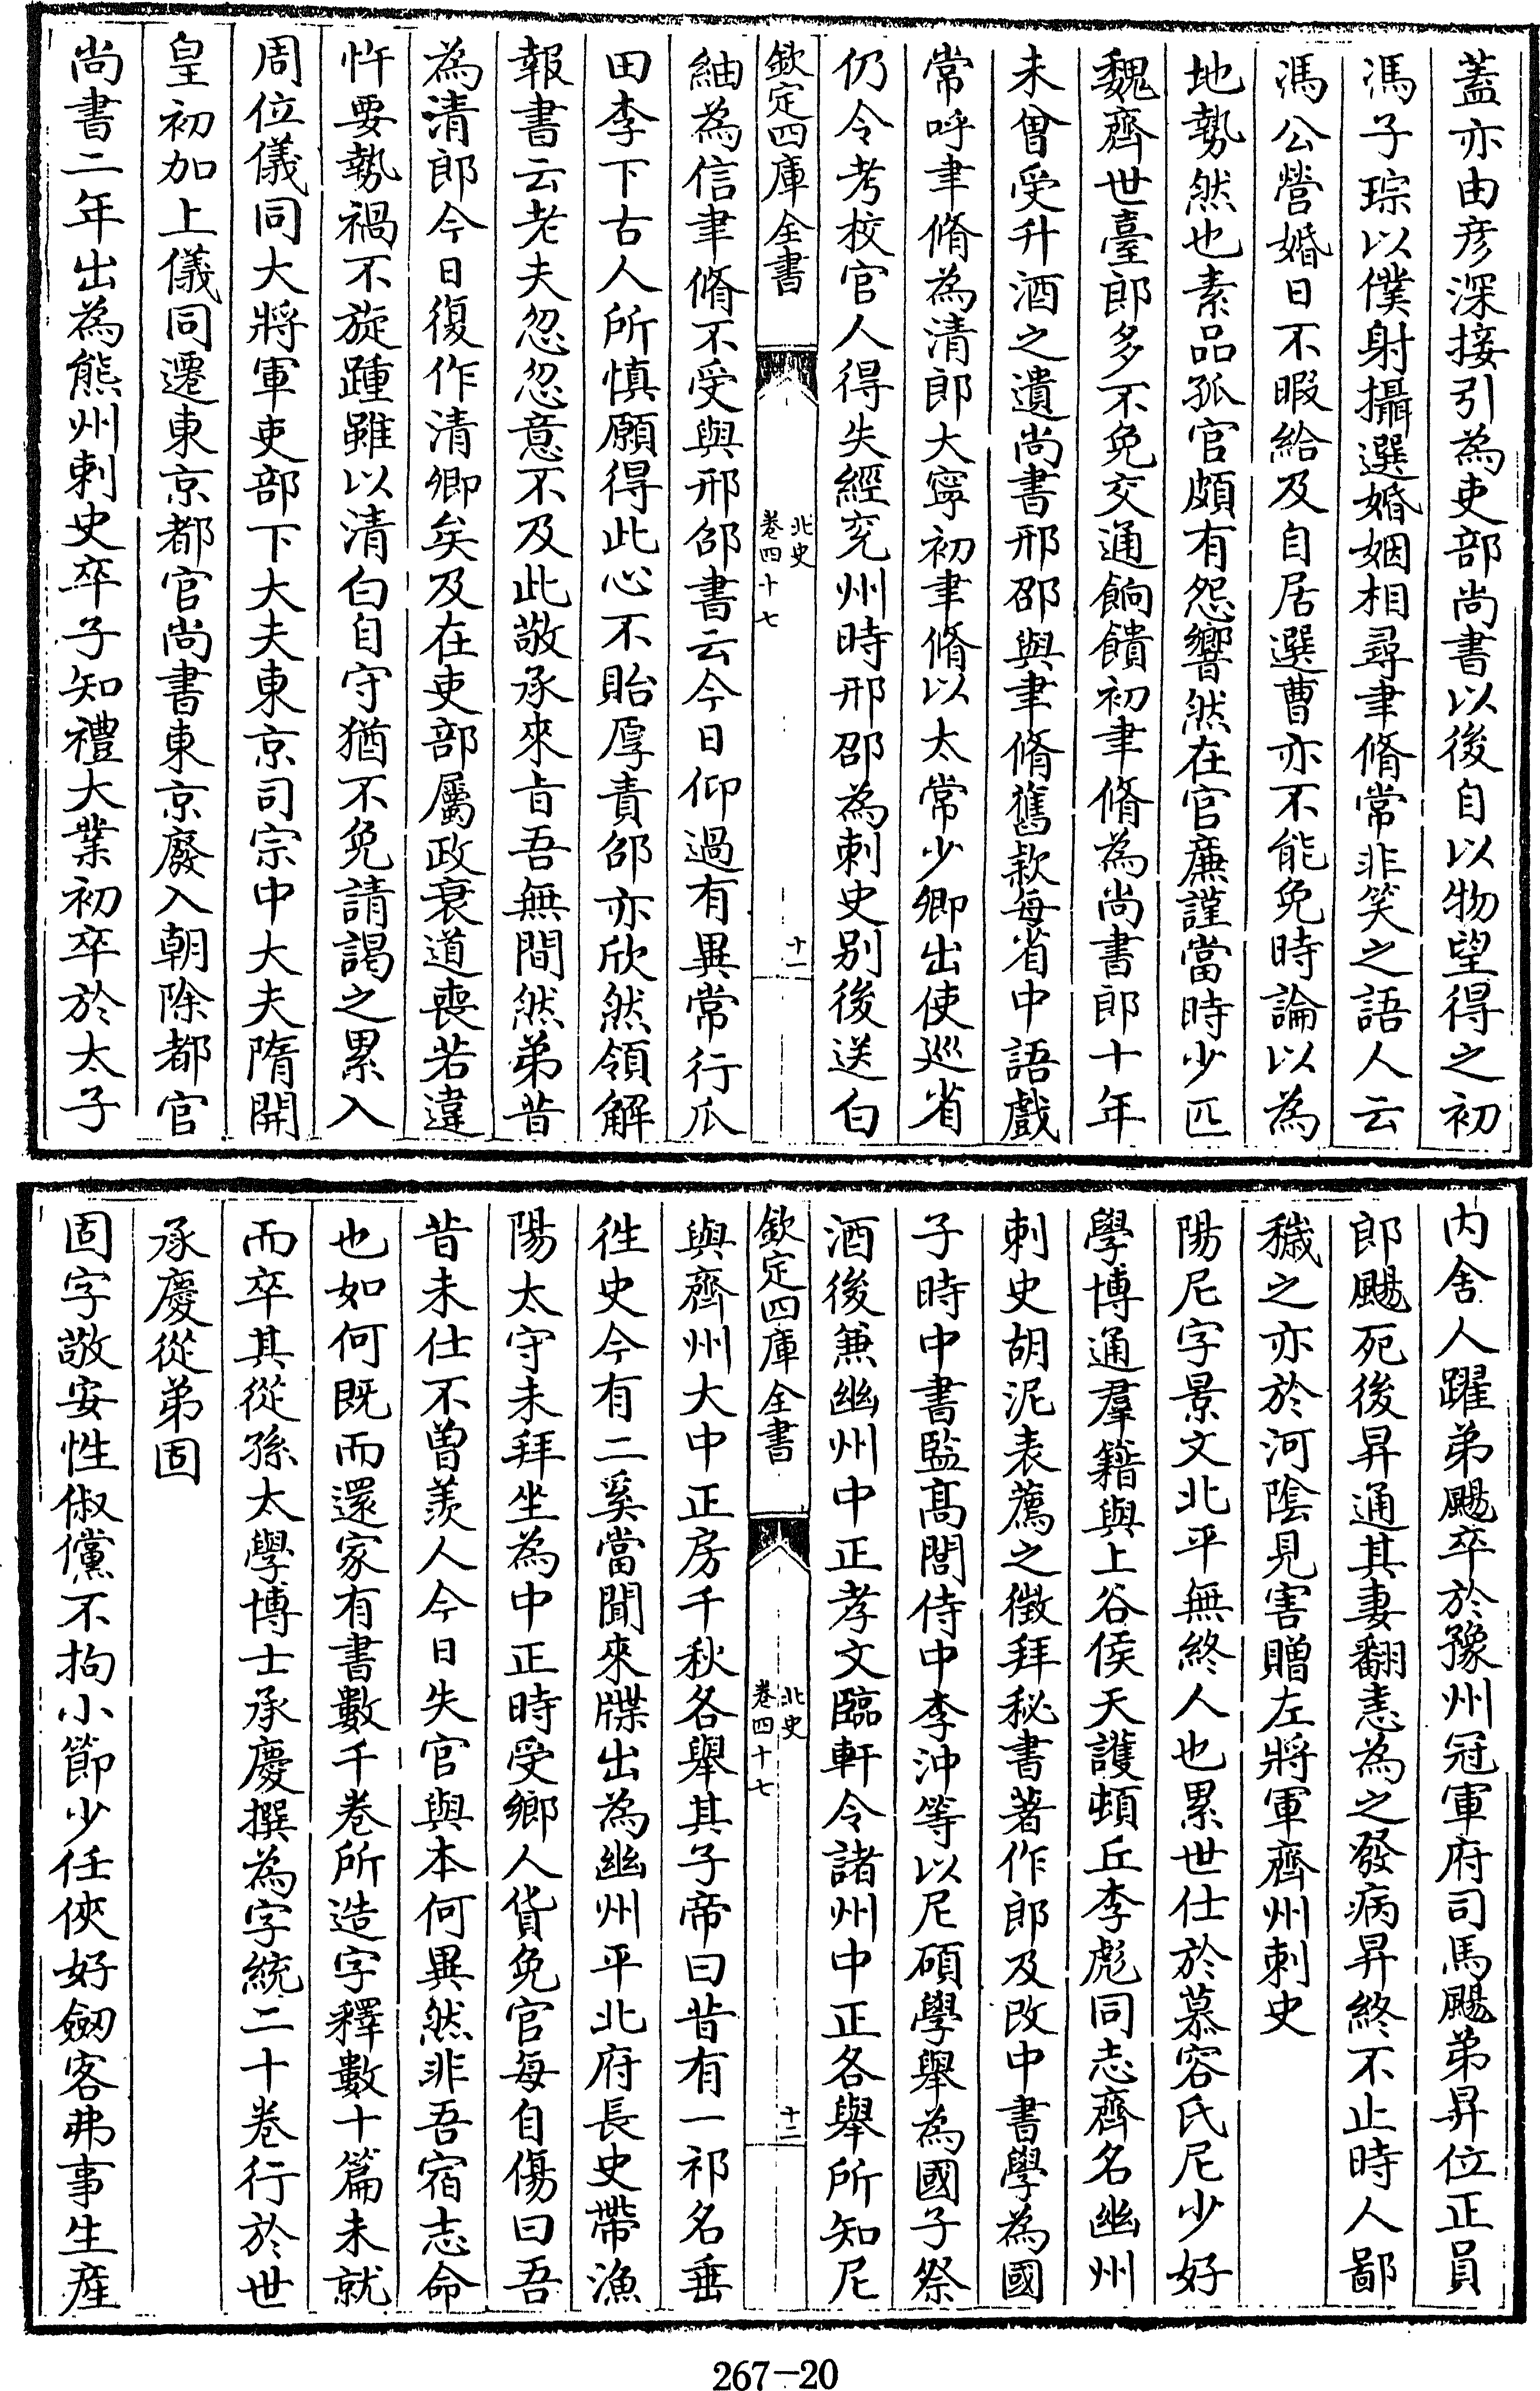 蓋亦由彦深接引為吏部尚書以後自以物望得之初
馮子琮以僕射攝選婚姻相尋聿脩常非笑之語人云
馮公營婚日不暇給及自居選曹亦不能免時論以為
地勢然也素品孤官頗有怨響然在官廉謹當時少匹
魏齊世臺郎多不免交通餉饋初聿脩為尚書郎十年
未曾受升酒之遺尚書邢邵與聿脩舊款每省中語戲
常呼聿脩為清郎大寧初聿脩以太常少卿出使巡省
仍令考校官人得失經兖州時邢邵為刺史别後送白
欽定四庫全書
北史
卷四十七
十一
紬為信聿脩不受與邢邵書云今日仰過有異常行瓜
田李下古人所慎願得此心不貽厚責邵亦欣然領解
報書云老夫忽忽意不及此敬承來㫖吾無間然弟昔
為清郎今日復作清卿矣及在吏部屬政衰道喪若違
忤要勢禍不旋踵雖以清白自守猶不免請謁之累入
周位儀同大將軍吏部下大夫東京司宗中大夫隋開
皇初加上儀同遷東京都官尚書東京廢入朝除都官
尚書二年出為熊州刺史卒子知禮大業初卒於太子
内舍人躍弟颺卒於豫州冠軍府司馬颺弟昇位正員
郎颺死後昇通其妻翻恚為之發病昇終不止時人鄙
穢之亦於河陰見害贈左將軍齊州刺史
陽尼字景文北平無終人也累世仕於慕容氏尼少好
學博通羣籍與上谷侯天護頓丘李彪同志齊名幽州
刺史胡泥表薦之徵拜秘書著作郎及改中書學為國
子時中書監髙閭侍中李沖等以尼碩學舉為國子祭
酒後兼幽州中正孝文臨軒令諸州中正各舉所知尼
欽定四庫全書
北史
卷四十七
十二
與齊州大中正房千秋各舉其子帝曰昔有一祁名垂
徃史今有二奚當聞來牒出為幽州平北府長史帶漁
陽太守未拜坐為中正時受鄉人貨免官每自傷曰吾
昔未仕不曾羨人今日失官與本何異然非吾宿志命
也如何既而還家有書數千卷所造字釋數十篇未就
而卒其從孫太學博士承慶撰為字統二十卷行於世
承慶從弟固
固字敬安性俶儻不拘小節少任俠好劒客弗事生産
267-20